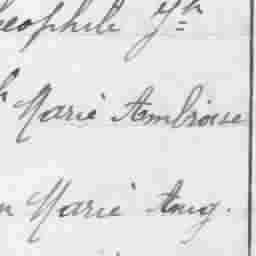 eophile Jh
h Marie Ambroise
n Marie Aug.